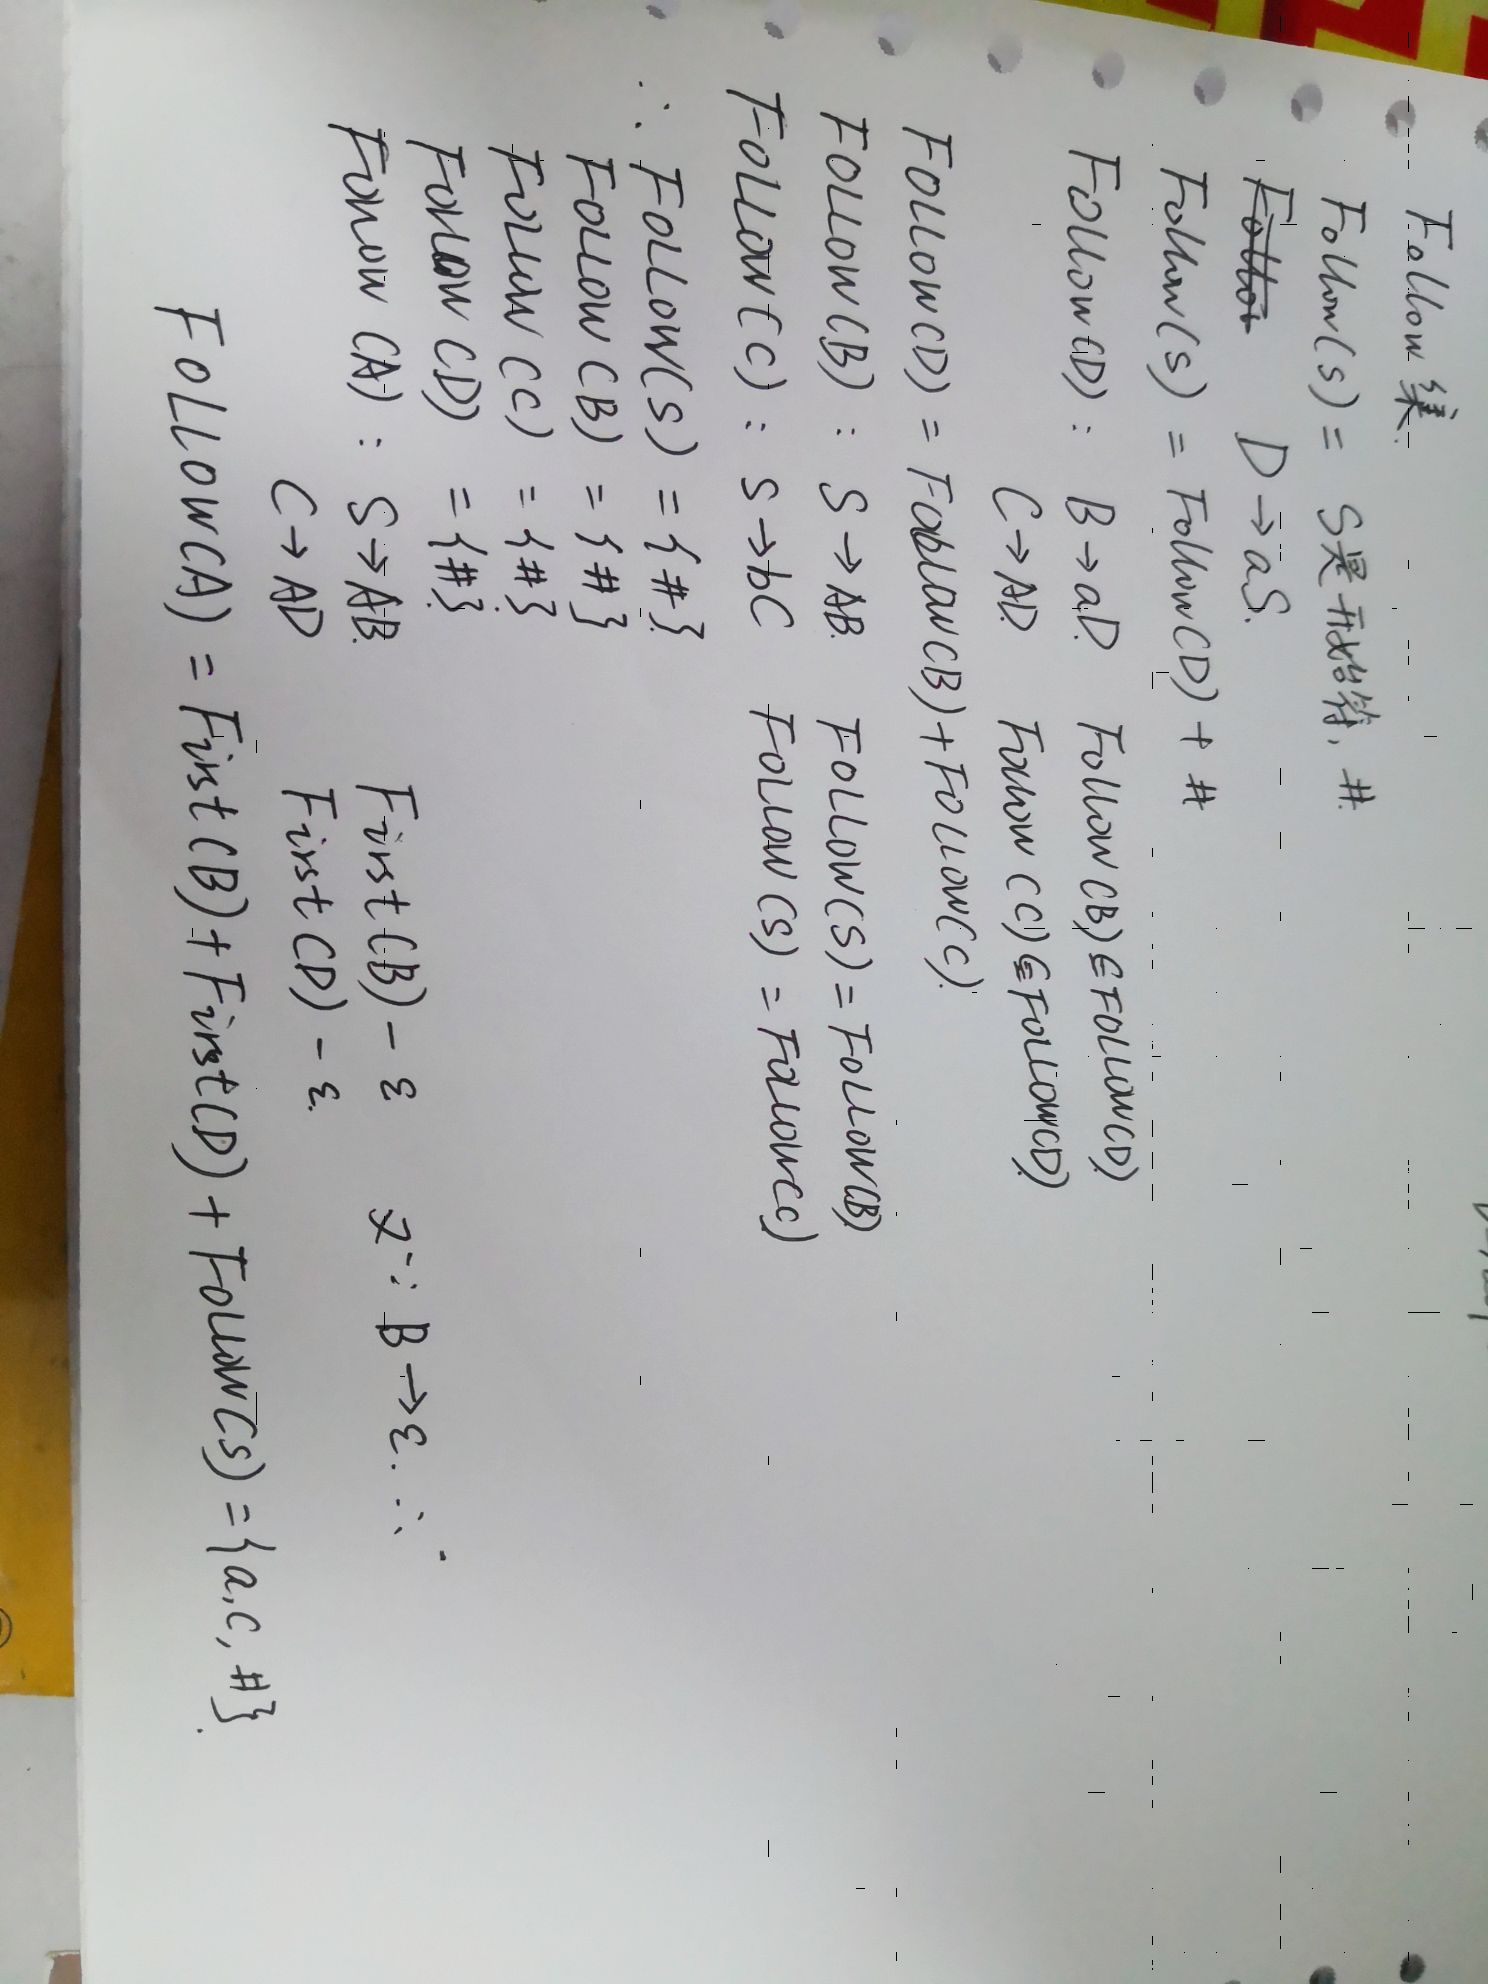 Follow集.
Follow(S) = S是开始符, #
D→aS.
Follow(S) = Follow(D) + #
Follow(D): B→aD Follow(B)⊆Follow(D)
C→AD Follow(C)⊆Follow(D)
Follow(D) = Follow(B)+Follow(C).
Follow(B): S→AB. Follow(S)=Follow(B)
Follow(C): S→bC Follow(S)=Follow(C)
∴ Follow(S) = {#}.
Follow(B) = {#}
Follow(C) = {#}
Follow(D) = {#}
Follow(A): S→AB. First(B)-ε 又∵B→ε. ∴
C→AD First(D)-ε.
Follow(A) = First(B)+First(D)+Follow(S)={a,c,#}.